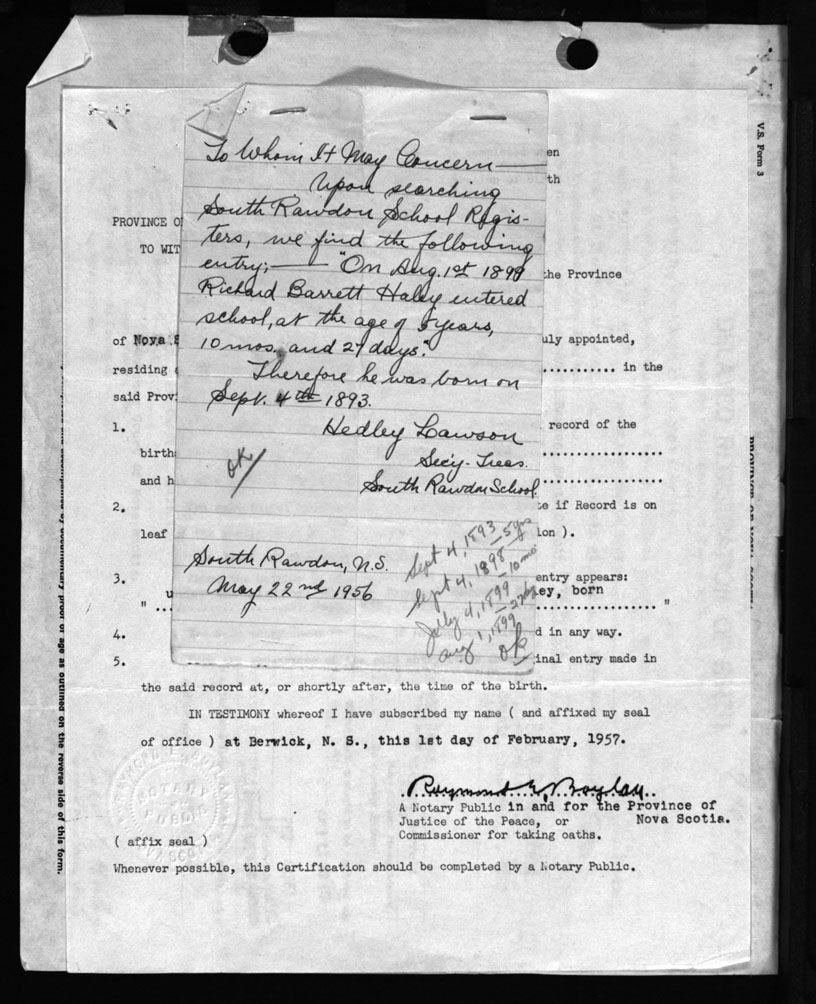 V.S. Form 3
To Whom It May Concern —
Upon searching
South Rawdon School Regis-
ters, we find the following
entry; — "On Aug. 1st 1899
Richard Barrett Haley entered
school, at the age of 5 years,
10 mos. and 27 days."
Therefore he was born on
Sept. 4th 1893.
Hedley Lawson
Sec'y-Treas.
South Rawdon School.
ok
South Rawdon, N.S.
May 22nd 1956
Sept 4, 1893 — 5 yrs
Sept 4, 1898 — 10 mo
July 4, 1899 — 27 dys
Aug 1, 1899
ok
en
th
PROVINCE O
TO WIT
the Province
of Nova S
uly appointed,
residing
in the
said Prov
1.
record of the
birth
and h
2.
te if Record is on
leaf
ion ).
3.
entry appears:
ey, born
" ... "
4.
d in any way.
5.
inal entry made in
the said record at, or shortly after, the time of the birth.
IN TESTIMONY whereof I have subscribed my name ( and affixed my seal
of office ) at Berwick, N. S., this 1st day of February, 1957.
Raymond E. Boylan
A Notary Public in and for the Province of
Justice of the Peace, or Nova Scotia.
Commissioner for taking oaths.
( affix seal )
NOTARY
PUBLIC
Whenever possible, this Certification should be completed by a Notary Public.
documentary proof of age as outlined on the reverse side of this form.